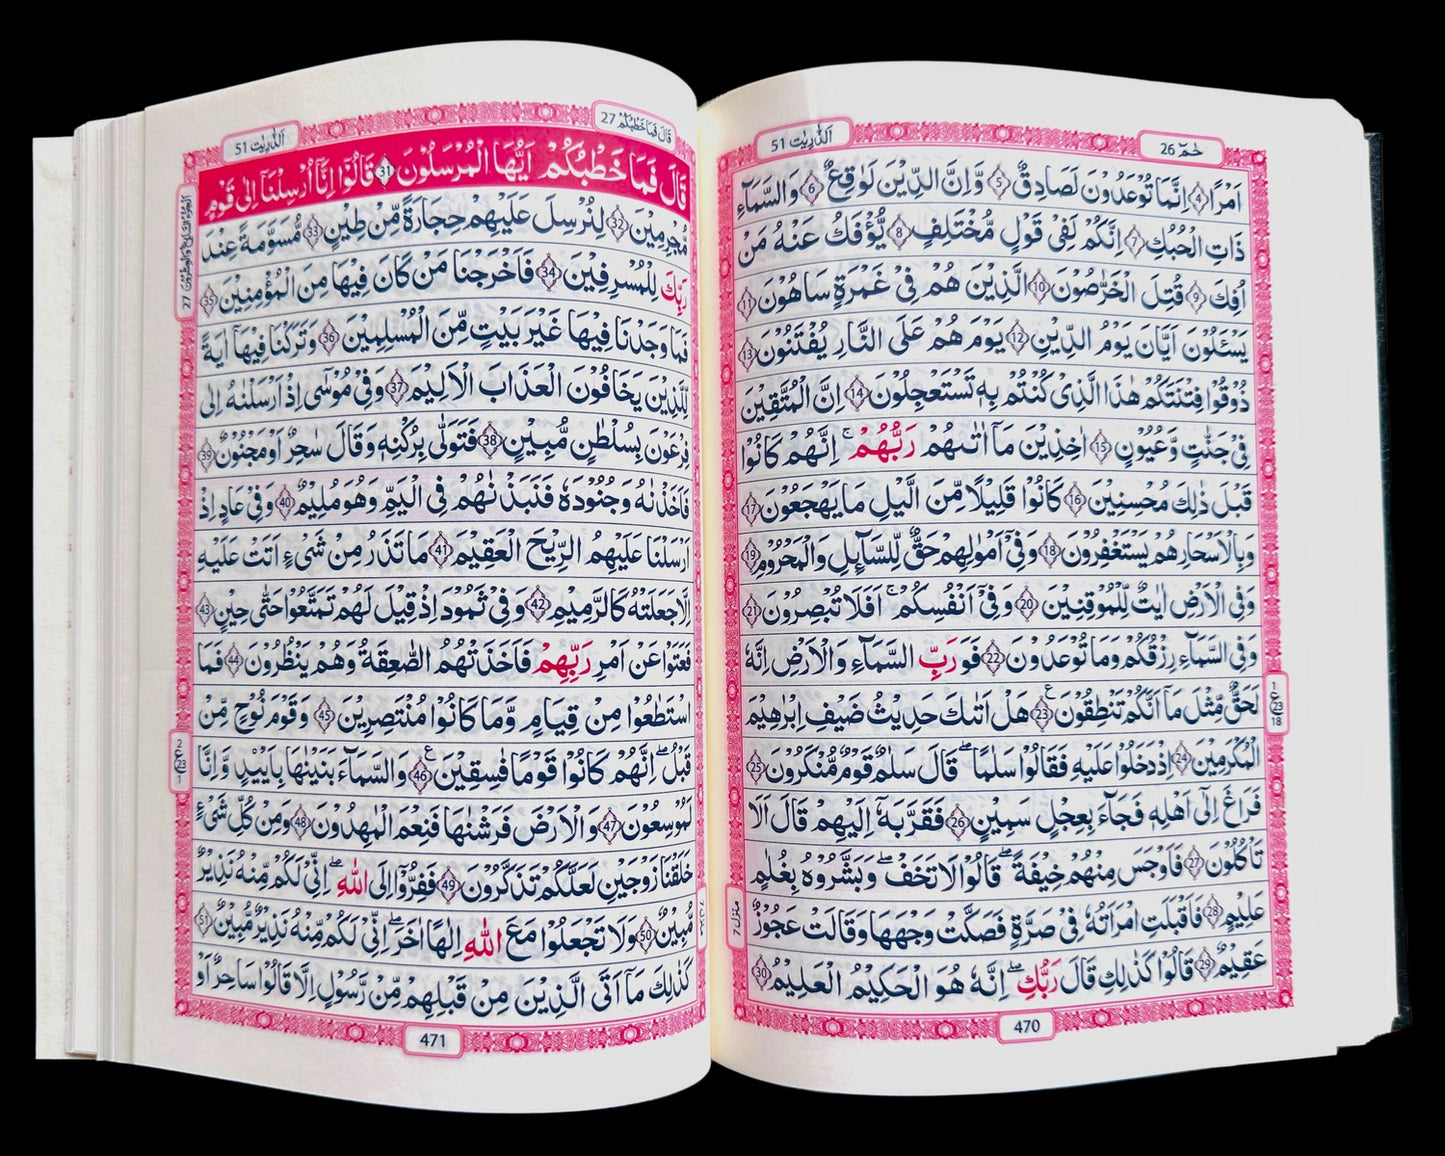 حٰمٓ 26
اَلذّٰرِیٰت 51
اَمْرًا ۙ4 اِنَّمَا تُوْعَدُوْنَ لَصَادِقٌ ۙ5 وَّاِنَّ الدِّیْنَ لَوَاقِعٌ ؕ6 وَالسَّمَآءِ
ذَاتِ الْحُبُكِ ۙ7 اِنَّكُمْ لَفِیْ قَوْلٍ مُّخْتَلِفٍ ۙ8 یُّؤْفَكُ عَنْهُ مَنْ
اُفِكَ ؕ9 قُتِلَ الْخَرّٰصُوْنَ ۙ10 الَّذِیْنَ هُمْ فِیْ غَمْرَةٍ سَاهُوْنَ ۙ11
یَسْـَٔلُوْنَ اَیَّانَ یَوْمُ الدِّیْنِ ؕ12 یَوْمَ هُمْ عَلَی النَّارِ یُفْتَنُوْنَ 13
ذُوْقُوْا فِتْنَتَكُمْ هٰذَا الَّذِیْ كُنْتُمْ بِهٖ تَسْتَعْجِلُوْنَ 14 اِنَّ الْمُتَّقِیْنَ
فِیْ جَنّٰتٍ وَّعُیُوْنٍ ۙ15 اٰخِذِیْنَ مَاۤ اٰتٰىهُمْ رَبُّهُمْ ؕ اِنَّهُمْ كَانُوْا
قَبْلَ ذٰلِكَ مُحْسِنِیْنَ ؕ16 كَانُوْا قَلِیْلًا مِّنَ الَّیْلِ مَا یَهْجَعُوْنَ 17
وَبِالْاَسْحَارِ هُمْ یَسْتَغْفِرُوْنَ 18 وَفِیْۤ اَمْوَالِهِمْ حَقٌّ لِّلسَّآىِٕلِ وَالْمَحْرُوْمِ 19
وَفِی الْاَرْضِ اٰیٰتٌ لِّلْمُوْقِنِیْنَ ۙ20 وَفِیْۤ اَنْفُسِكُمْ ؕ اَفَلَا تُبْصِرُوْنَ 21
وَفِی السَّمَآءِ رِزْقُكُمْ وَمَا تُوْعَدُوْنَ 22 فَوَرَبِّ السَّمَآءِ وَالْاَرْضِ اِنَّهٗ
لَحَقٌّ مِّثْلَ مَاۤ اَنَّكُمْ تَنْطِقُوْنَ 23 هَلْ اَتٰىكَ حَدِیْثُ ضَیْفِ اِبْرٰهِیْمَ
الْمُكْرَمِیْنَ ۘ24 اِذْ دَخَلُوْا عَلَیْهِ فَقَالُوْا سَلٰمًا ؕ قَالَ سَلٰمٌ ۚ قَوْمٌ مُّنْكَرُوْنَ 25
فَرَاغَ اِلٰۤی اَهْلِهٖ فَجَآءَ بِعِجْلٍ سَمِیْنٍ ۙ26 فَقَرَّبَهٗۤ اِلَیْهِمْ قَالَ اَلَا
تَاْكُلُوْنَ 27 فَاَوْجَسَ مِنْهُمْ خِیْفَةً ؕ قَالُوْا لَا تَخَفْ ؕ وَبَشَّرُوْهُ بِغُلٰمٍ
عَلِیْمٍ 28 فَاَقْبَلَتِ امْرَاَتُهٗ فِیْ صَرَّةٍ فَصَكَّتْ وَجْهَهَا وَقَالَتْ عَجُوْزٌ
عَقِیْمٌ 29 قَالُوْا كَذٰلِكِ ۙ قَالَ رَبُّكِ ؕ اِنَّهٗ هُوَ الْحَكِیْمُ الْعَلِیْمُ 30
1 ع 23 18
منزل 7
470
قَالَ فَمَا خَطْبُكُمْ 27
اَلذّٰرِیٰت 51
قَالَ فَمَا خَطْبُكُمْ اَیُّهَا الْمُرْسَلُوْنَ 31 قَالُوْۤا اِنَّاۤ اُرْسِلْنَاۤ اِلٰی قَوْمٍ
مُّجْرِمِیْنَ ۙ32 لِنُرْسِلَ عَلَیْهِمْ حِجَارَةً مِّنْ طِیْنٍ ۙ33 مُّسَوَّمَةً عِنْدَ
رَبِّكَ لِلْمُسْرِفِیْنَ 34 فَاَخْرَجْنَا مَنْ كَانَ فِیْهَا مِنَ الْمُؤْمِنِیْنَ ۚ35
فَمَا وَجَدْنَا فِیْهَا غَیْرَ بَیْتٍ مِّنَ الْمُسْلِمِیْنَ ۚ36 وَتَرَكْنَا فِیْهَاۤ اٰیَةً
لِّلَّذِیْنَ یَخَافُوْنَ الْعَذَابَ الْاَلِیْمَ ؕ37 وَفِیْ مُوْسٰۤی اِذْ اَرْسَلْنٰهُ اِلٰی
فِرْعَوْنَ بِسُلْطٰنٍ مُّبِیْنٍ 38 فَتَوَلّٰی بِرُكْنِهٖ وَقَالَ سٰحِرٌ اَوْ مَجْنُوْنٌ 39
فَاَخَذْنٰهُ وَجُنُوْدَهٗ فَنَبَذْنٰهُمْ فِی الْیَمِّ وَهُوَ مُلِیْمٌ ؕ40 وَفِیْ عَادٍ اِذْ
اَرْسَلْنَا عَلَیْهِمُ الرِّیْحَ الْعَقِیْمَ ۚ41 مَا تَذَرُ مِنْ شَیْءٍ اَتَتْ عَلَیْهِ
اِلَّا جَعَلَتْهُ كَالرَّمِیْمِ ؕ42 وَفِیْ ثَمُوْدَ اِذْ قِیْلَ لَهُمْ تَمَتَّعُوْا حَتّٰی حِیْنٍ 43
فَعَتَوْا عَنْ اَمْرِ رَبِّهِمْ فَاَخَذَتْهُمُ الصّٰعِقَةُ وَهُمْ یَنْظُرُوْنَ 44 فَمَا
اسْتَطٰعُوْا مِنْ قِیَامٍ وَّمَا كَانُوْا مُنْتَصِرِیْنَ ۙ45 وَقَوْمَ نُوْحٍ مِّنْ
قَبْلُ ؕ اِنَّهُمْ كَانُوْا قَوْمًا فٰسِقِیْنَ 46 وَالسَّمَآءَ بَنَیْنٰهَا بِاَیْىدٍ وَّاِنَّا
لَمُوْسِعُوْنَ 47 وَالْاَرْضَ فَرَشْنٰهَا فَنِعْمَ الْمٰهِدُوْنَ 48 وَمِنْ كُلِّ شَیْءٍ
خَلَقْنَا زَوْجَیْنِ لَعَلَّكُمْ تَذَكَّرُوْنَ 49 فَفِرُّوْۤا اِلَی اللّٰهِ ؕ اِنِّیْ لَكُمْ مِّنْهُ نَذِیْرٌ
مُّبِیْنٌ ۚ50 وَلَا تَجْعَلُوْا مَعَ اللّٰهِ اِلٰهًا اٰخَرَ ؕ اِنِّیْ لَكُمْ مِّنْهُ نَذِیْرٌ مُّبِیْنٌ ۚ51
كَذٰلِكَ مَاۤ اَتَی الَّذِیْنَ مِنْ قَبْلِهِمْ مِّنْ رَّسُوْلٍ اِلَّا قَالُوْا سَاحِرٌ اَوْ
الجزء السابع والعشرون 27
2 ع 23 1
منزل 7
471